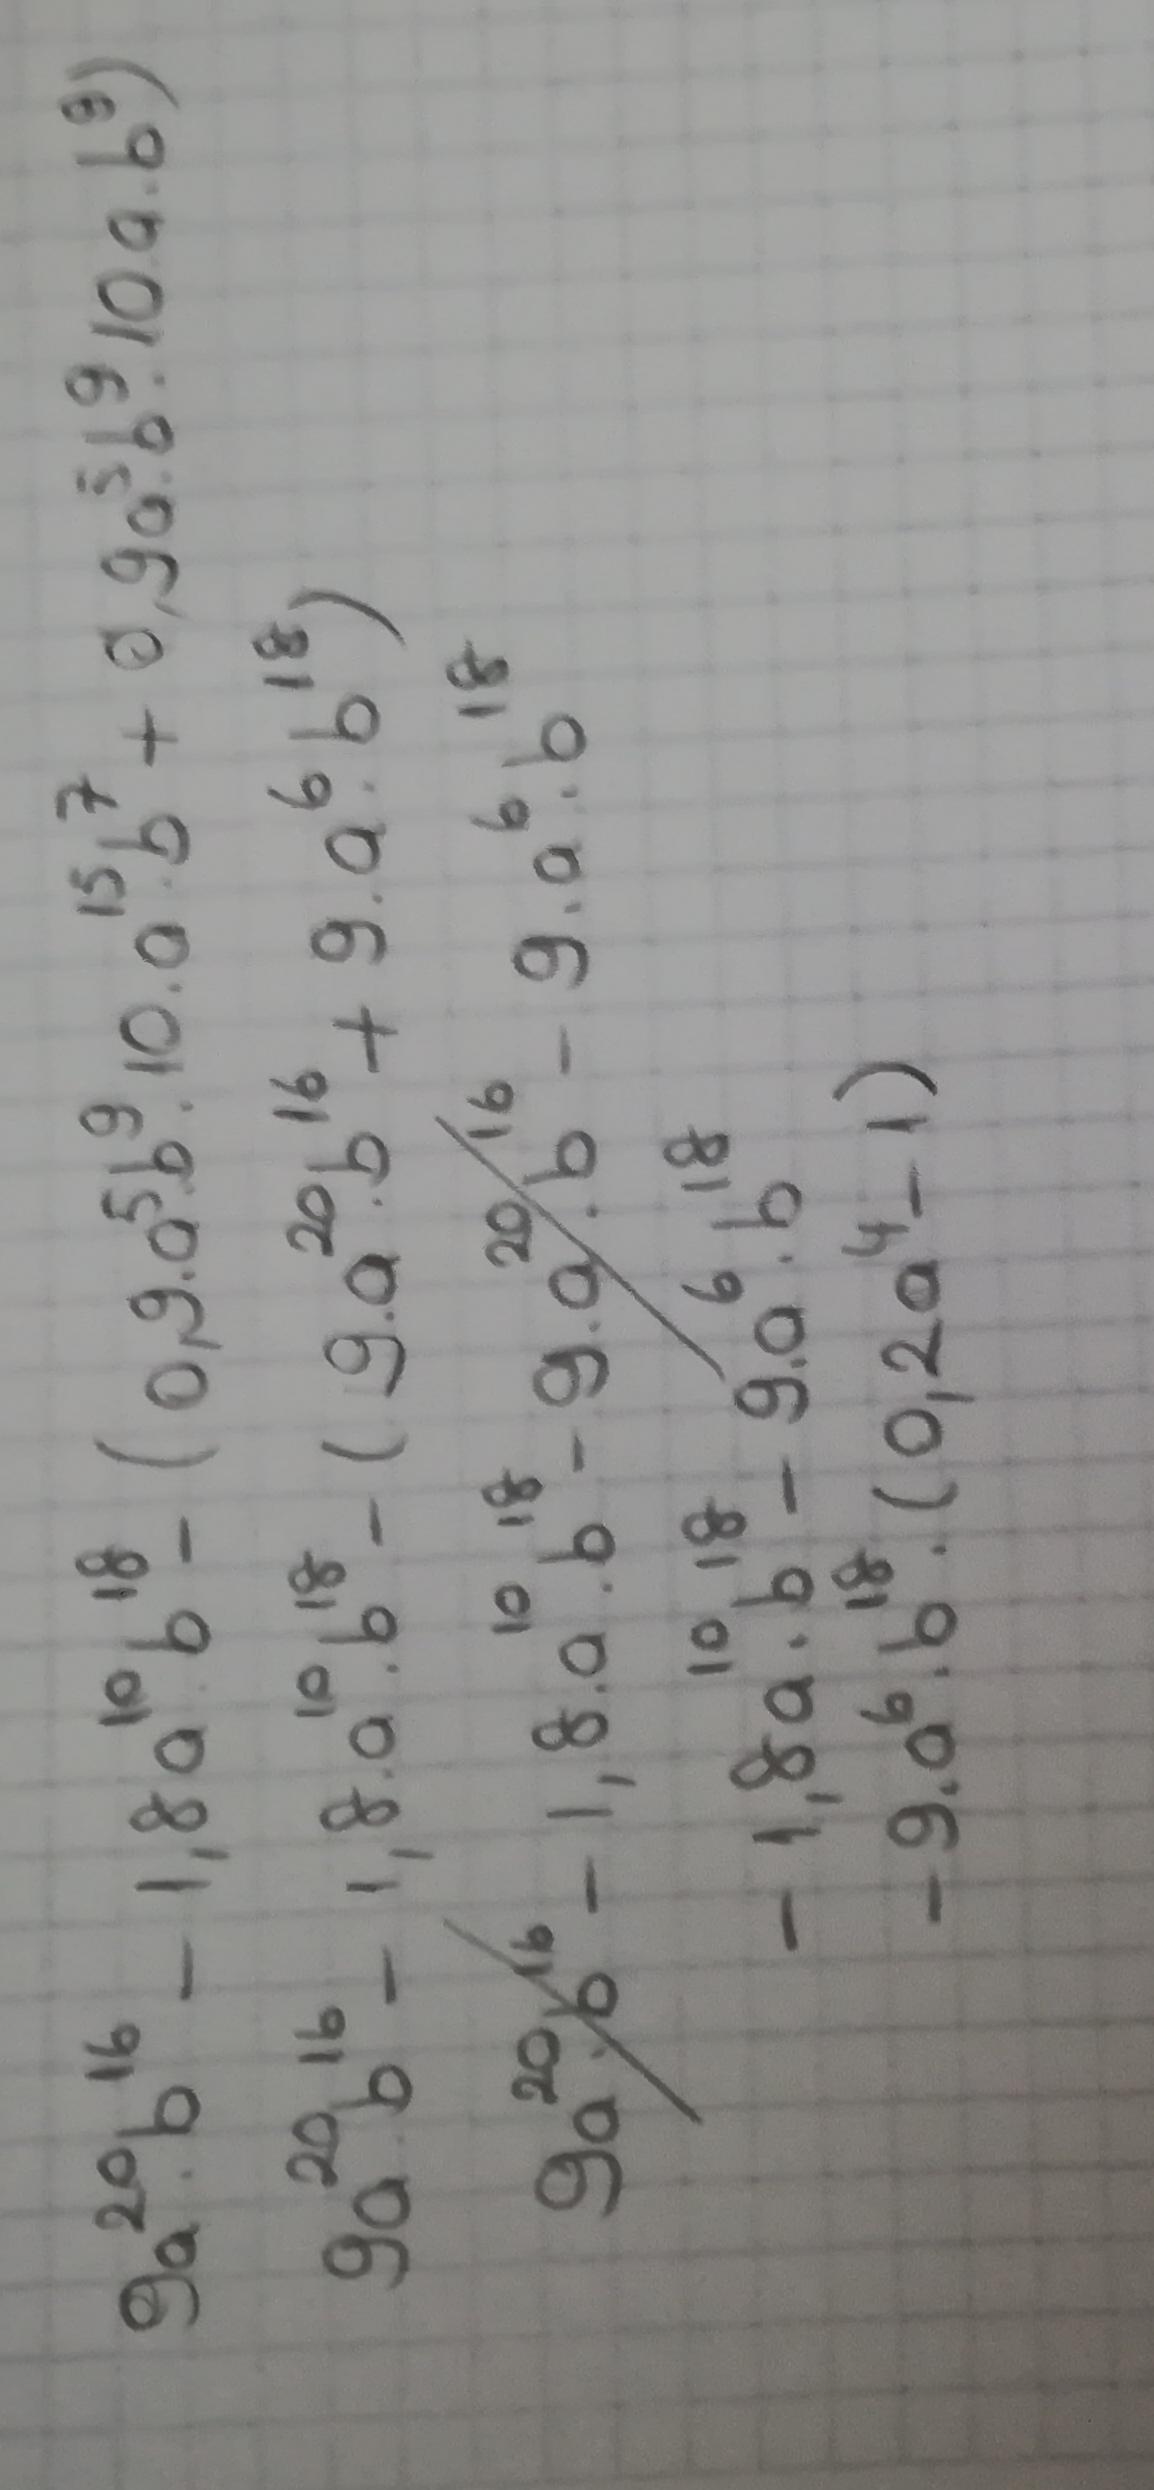 9a²⁰·b¹⁶ - 1,8a¹⁰·b¹⁸ - (0,9·a⁵·b⁹·10·a¹⁵·b⁷ + 0,9a⁵·b⁹·10a·b⁹)
9a²⁰·b¹⁶ - 1,8·a¹⁰·b¹⁸ - (9·a²⁰·b¹⁶ + 9·a⁶·b¹⁸)
9a²⁰·b¹⁶ - 1,8·a¹⁰·b¹⁸ - 9·a²⁰·b¹⁶ - 9·a⁶·b¹⁸
- 1,8a¹⁰·b¹⁸ - 9·a⁶·b¹⁸
- 9·a⁶·b¹⁸·(0,2a⁴ - 1)